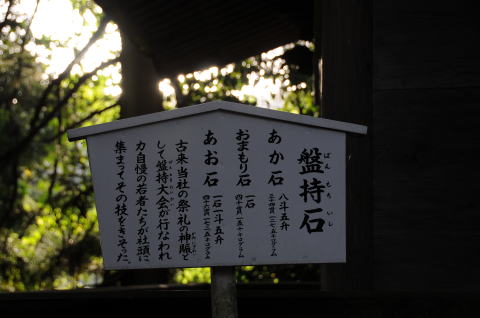 盤持石
ばんもちいし
あか石
八斗五升
三十四貫 一二七・五キログラム
おまもり石
一石
四十貫 一五十キログラム
あお石
一石一斗五升
四十六貫 一七二・五キログラム
古来当社の祭礼の神賑と
して盤持大会が行なわれ
力自慢の若者たちが社頭に
集まってその技をきそった。